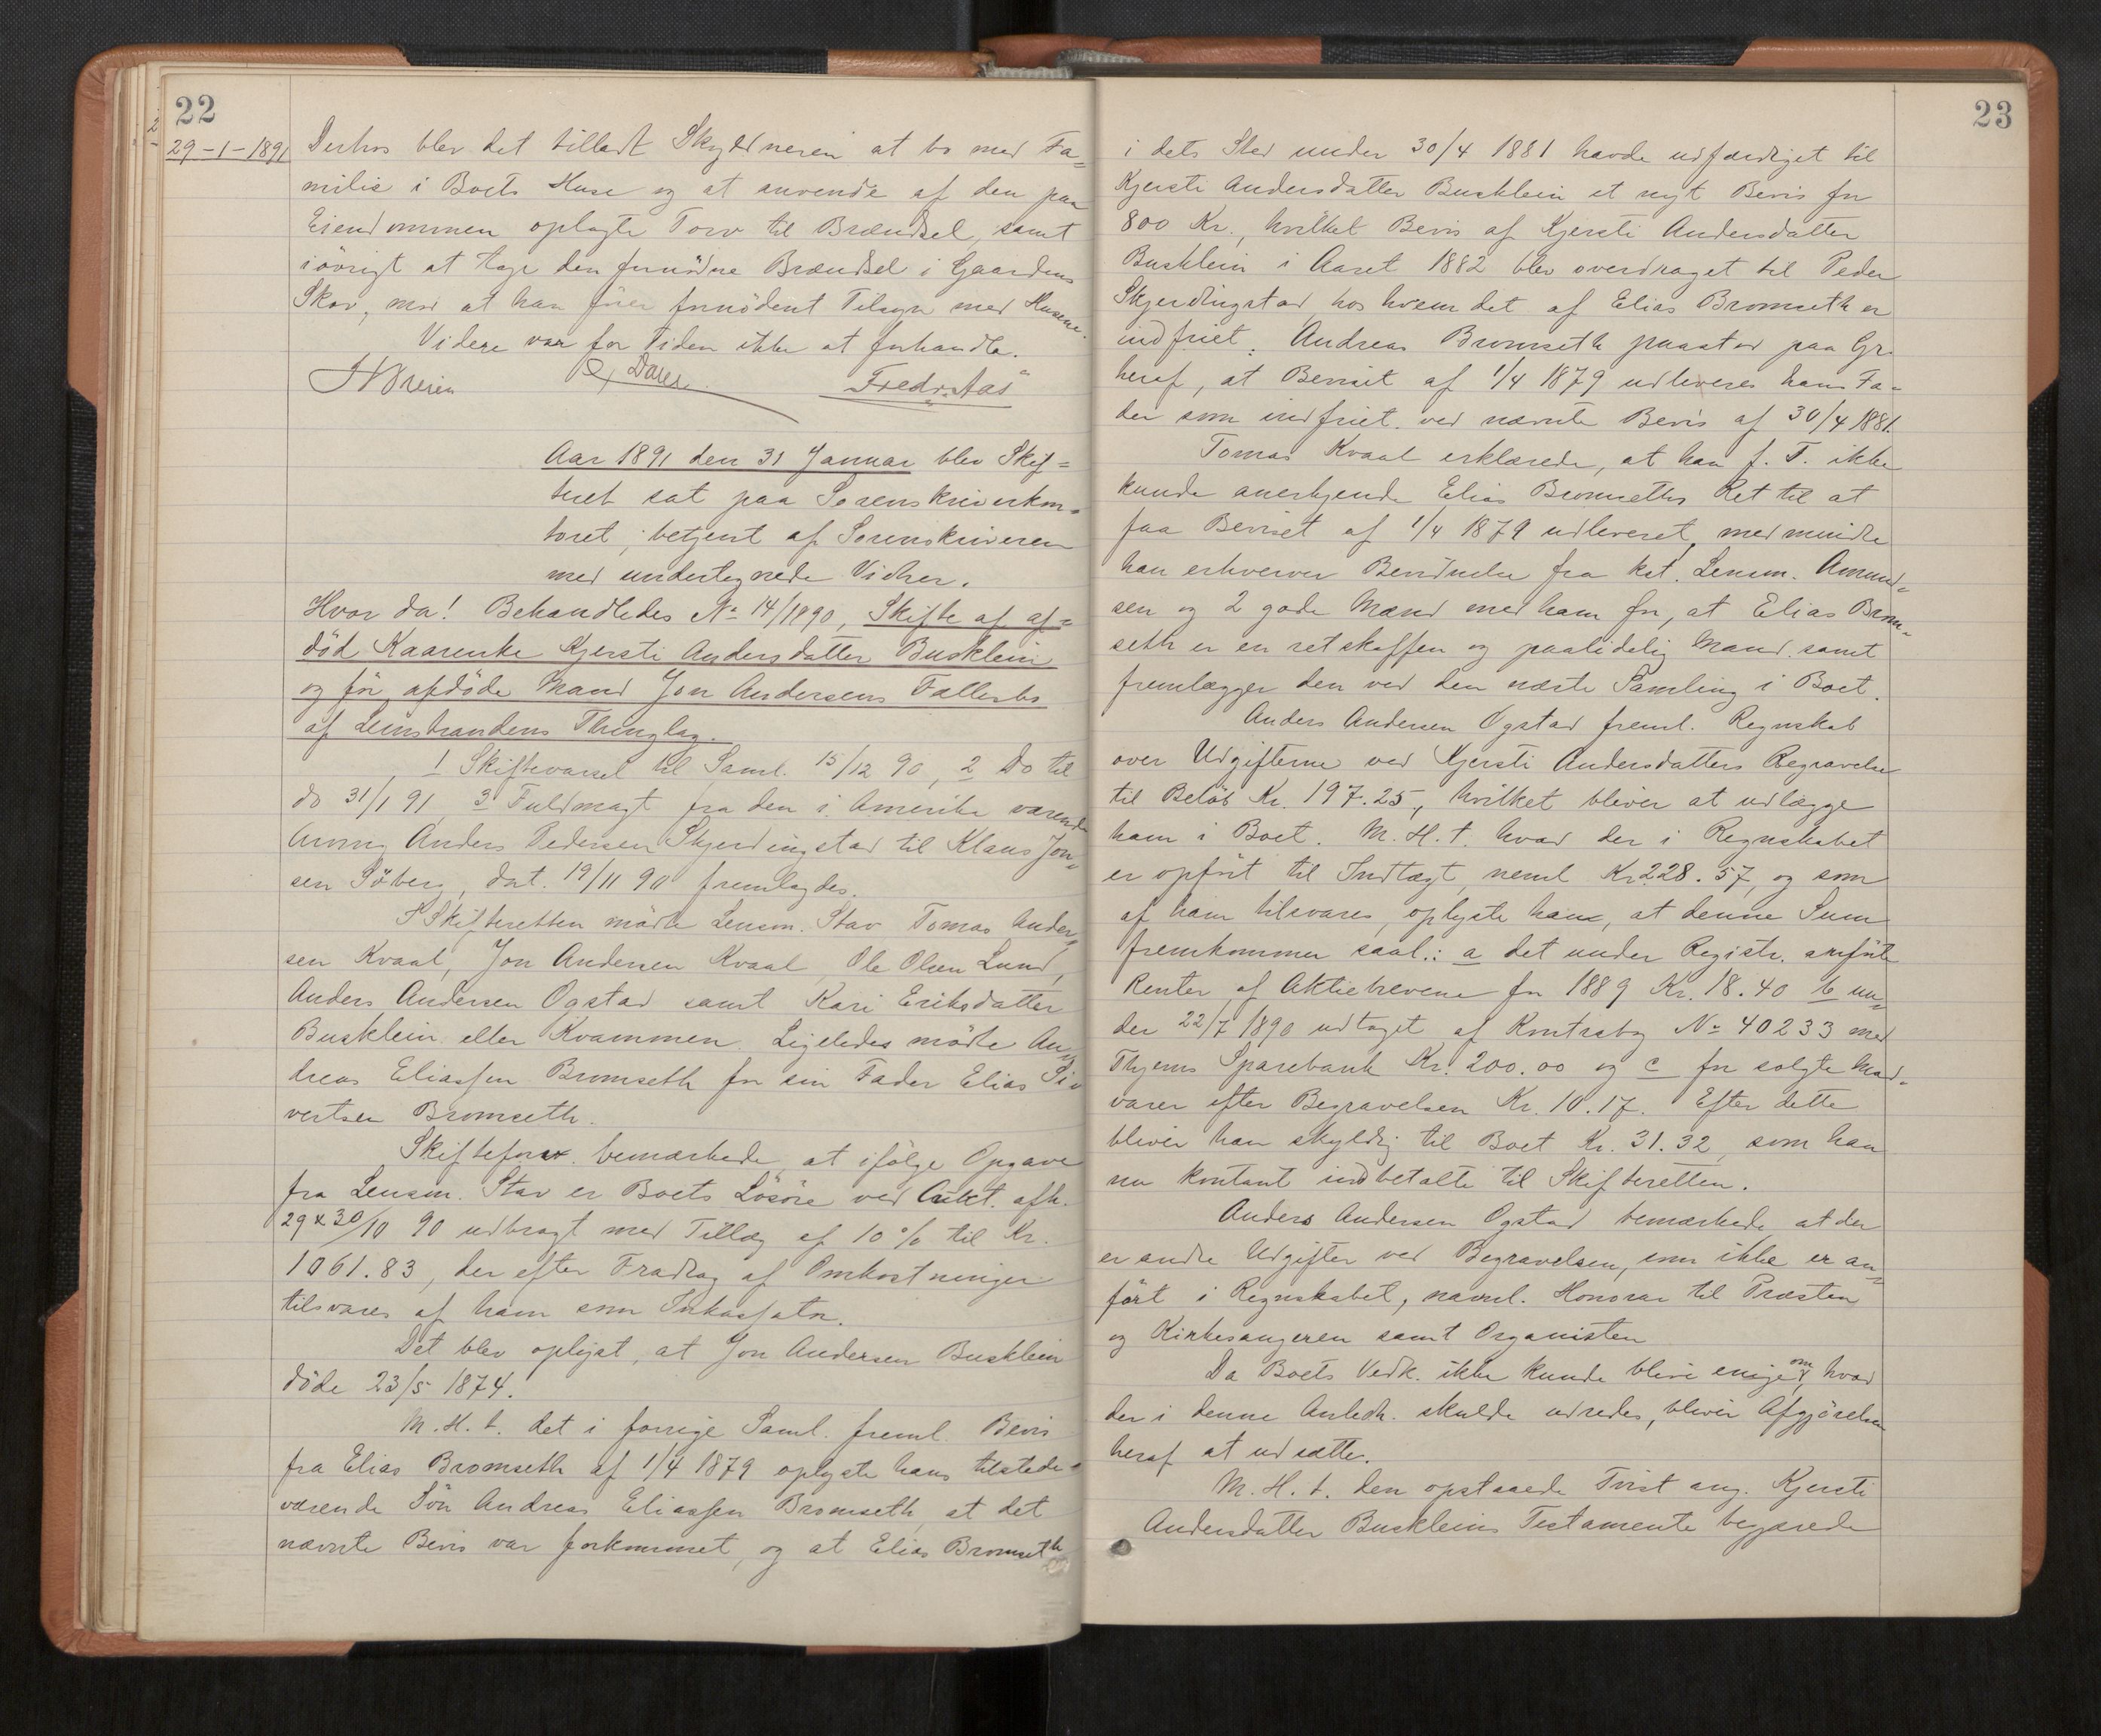 22
29-1-1891
Derhos blev det tilladt Skyldneren at bo med Fa=
milie i Boets Huse og at anvende af den paa
Eiendommen oplagte Torv til Brændsel, samt
iövrigt at tage den fornödne Brændsel i Gaardens
Skov, mod at han förer fornödent Tilsyn med Husene.
Videre var for Tiden ikke at forhandle.
Fredr. Aas
Aar 1891 den 31 Januar blev Skif=
teret sat paa Sorenskriverkon=
toret, betjent af Sorenskriveren
med undertegnede Vidner.
Hvor da! Behandledes No 14/1890, Skifte af af=
död Kaarenke Kjersti Andersdatter Busklein
og för afdöde Mand Jon Andersens Fællesbo
af Leinstrandens Thinglag.
1 Skiftevarsel til Saml. 15/12 90, 2 Do til
do 31/1 91, 3 Fuldmagt fra den i Amerika værende
Arving Anders Pedersen Skjerdingstad til Klaus Jon=
sen Söberg, dat. 19/11 90 fremlagdes.
I Skifteretten mödte Lensm. Stav Tomas Ander=
sen Kvaal, Jon Andersen Kvaal, Ole Olsen Lund,
Anders Andersen Ogstad samt Kari Eriksdatter
Busklein eller Kvammen. Ligeledes mödte An=
dreas Eliassen Bromseth for sin Fader Elias Si=
vertsen Bromseth.
Skifteforv. bemærkede, at ifölge Opgave
fra Lensm. Stav er Boets Lösöre ved Aukt. afh.
29 & 30/10 90 udbragt med Tillæg af 10 % til Kr.
1061.83, der efter Fradrag af Omkostninger
tilsvares af ham som Inkassator.
Det blev oplyst, at Jon Andersen Busklein
döde 23/5 1874.
M. H. t. det i forrige Saml. freml. Bevis
fra Elias Bromseth af 1/4 1879 oplyste hans tilstede=
værende Sön Andreas Eliassen Bromseth, at det
nævnte Bevis var forkommet, og at Elias Bromseth
23
i dets Sted under 30/4 1881 havde udfærdiget til
Kjersti Andersdatter Busklein et nyt Bevis for
800 Kr., hvilket Bevis af Kjersti Andersdatter
Busklein i Aaret 1882 blev overdraget til Peder
Skjerdingstad, hos hvem det af Elias Bromseth er
indfriet. Andreas Bromseth paastod paa Gr.
heraf, at Beviset af 1/4 1879 udleveres hans Fa=
der som indfriet ved nævnte Bevis af 30/4 1881.
Tomas Kvaal erklærede, at han f. T. ikke
kunde anerkjende Elias Bromseths Ret til at
faa Beviset af 1/4 1879 udleveret, medmindre
han erhverver Bevidnelse fra kst. Lensm. Amund=
sen og 2 gode Mænd med ham for, at Elias Brom=
seth er en retskaffen og paalidelig Mand samt
fremlægger den ved den næste Samling i Boet.
Anders Andersen Ogstad freml. Regnskab
over Udgifterne ved Kjersti Andersdatters Begravelse
til Beløb Kr. 197.25, hvilket bliver at udlægge
ham i Boet. M. H. t. hvad der i Regnskabet
er opfört til Indtægt, neml Kr. 228.57, og som
af ham tilsvares, oplyste han, at denne Sum
fremkommer saal.: a det under Registr. anförte
Renter af Aktiebrevene for 1889 Kr. 18.40 b un=
der 22/7 1890 udtaget af Kontrabog No 40233 med
Thjems Sparebank Kr. 200.00 og c for solgte Mad=
varer efter Begravelsen Kr. 10.17. Efter dette
bliver han skyldig til Boet Kr. 31.32, som han
nu kontant indbetalte til Skifteretten.
Anders Andersen Ogstad bemærkede, at der
er andre Udgifter ved Begravelsen, som ikke er an=
fört i Regnskabet, navnl. Honorar til Præsten
og Kirkesangeren samt Organisten
Da Boets Vedk. ikke kunde blive enige om, hvad
der i denne Anledn. skulde udredes, bliver Afgjörelsen
heraf at udsætte.
M. H. t. den opstaaede Tvist ang. Kjersti
Andersdatter Buskleins Testamente begjærede